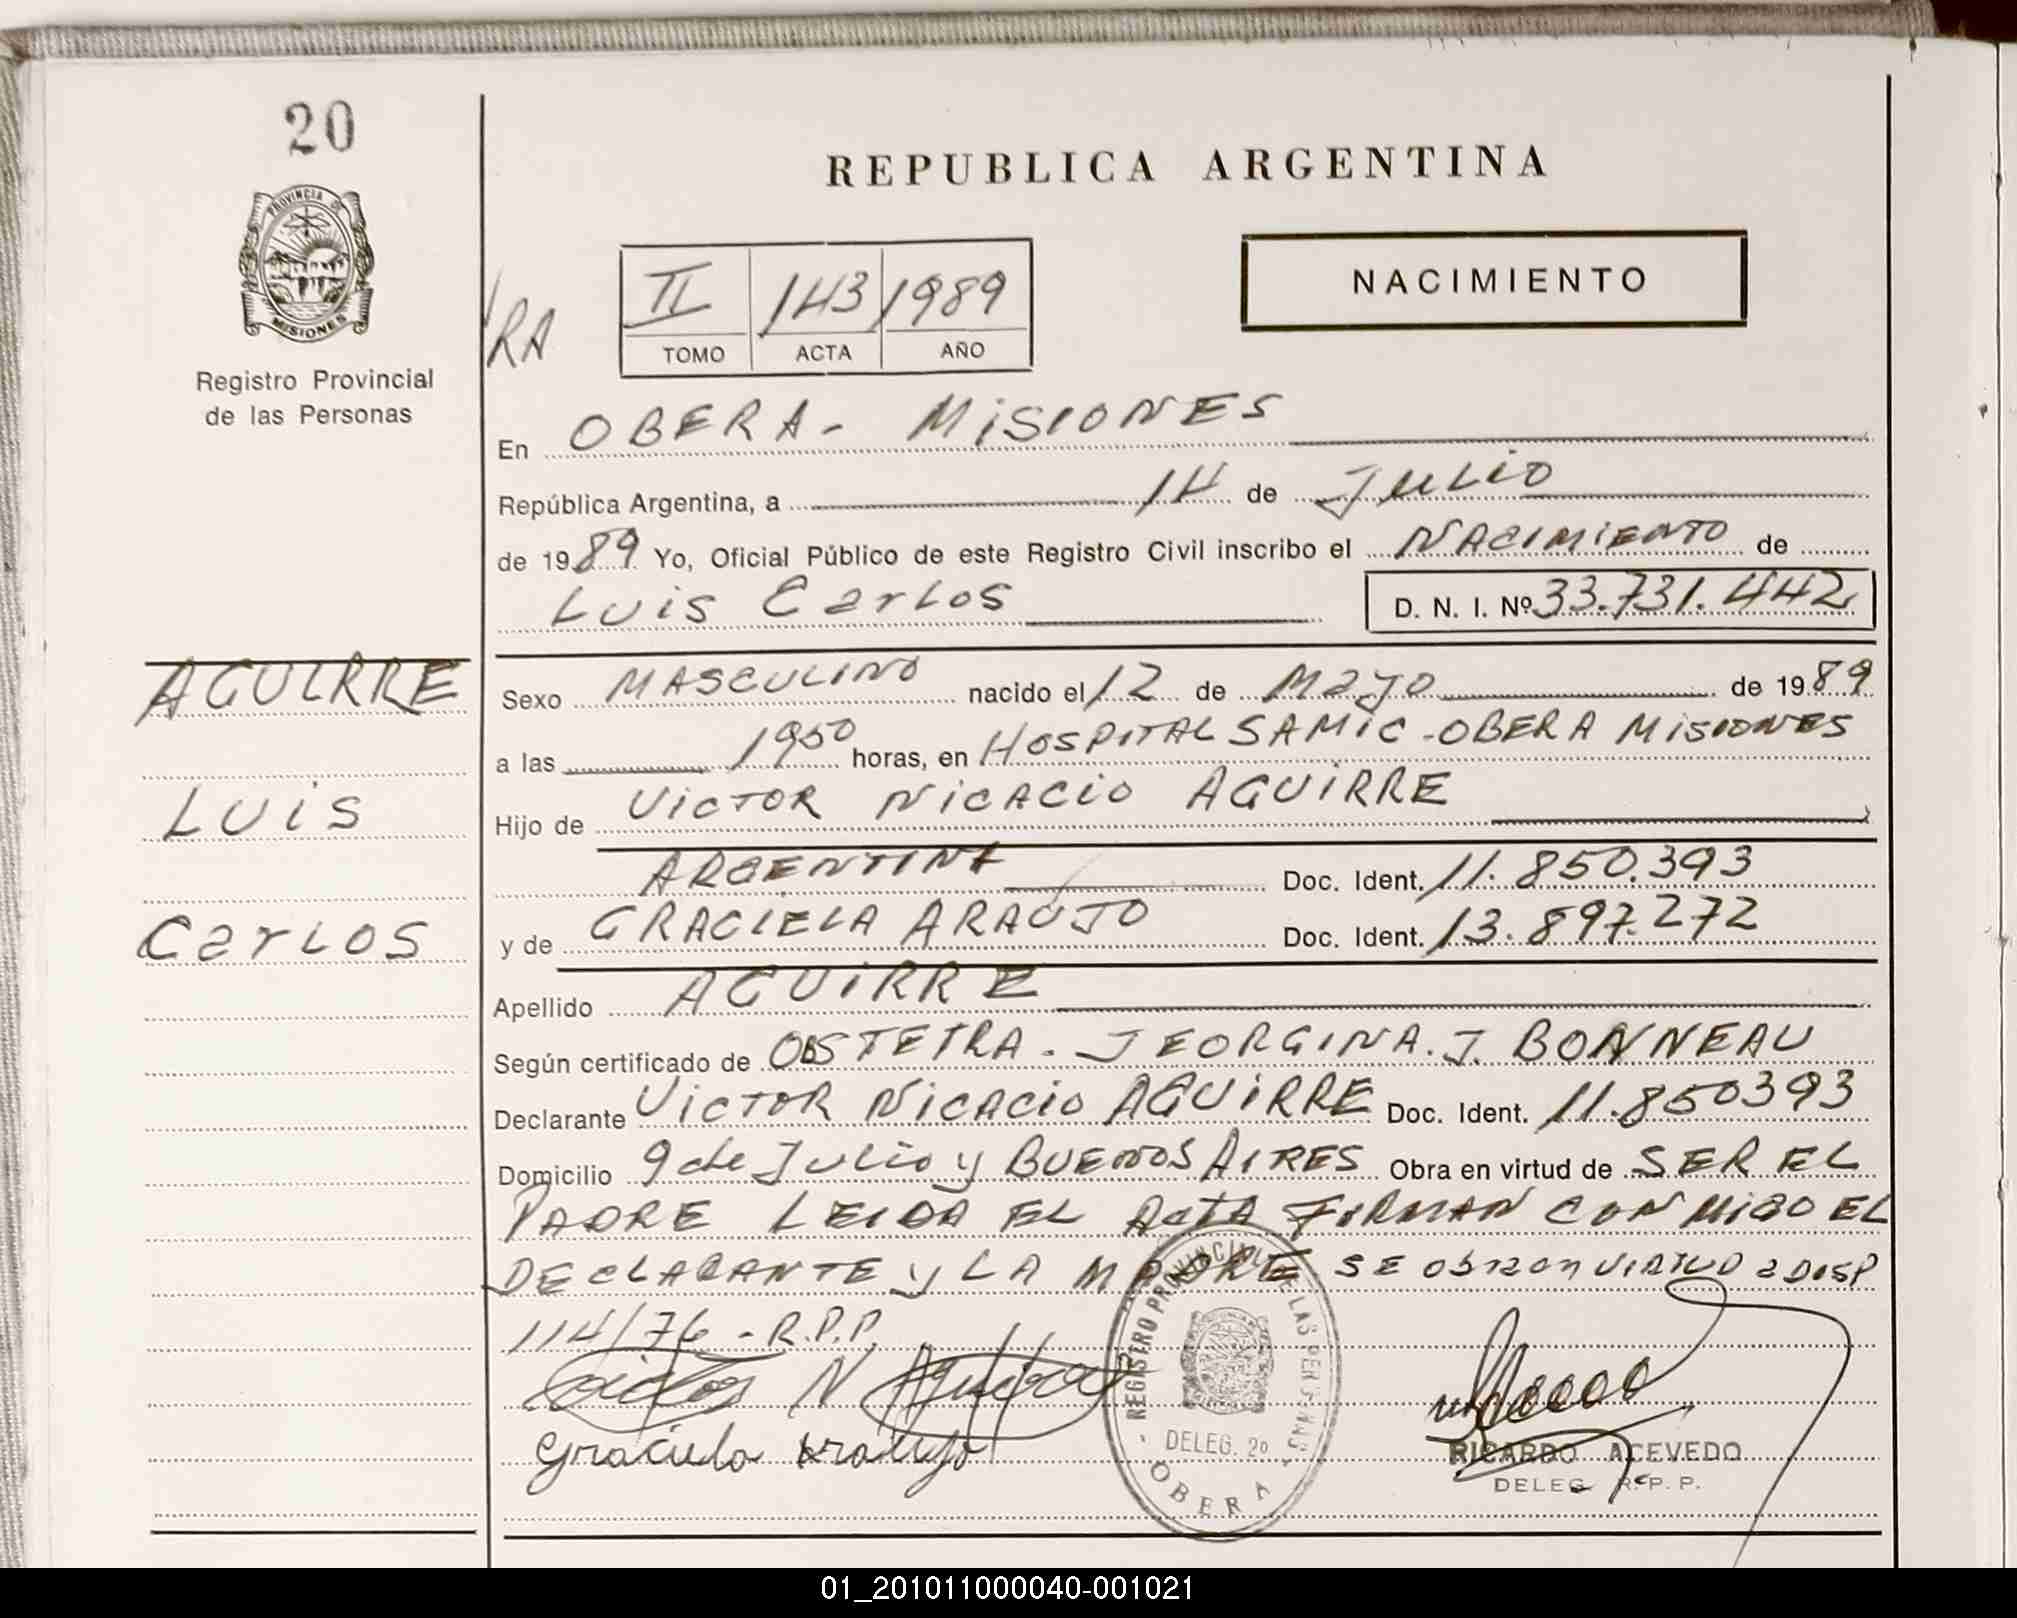 20
PROVINCIA DE
MISIONES
Registro Provincial
de las Personas
REPUBLICA ARGENTINA
NACIMIENTO
RA
II 143 1989
TOMO ACTA AÑO
En OBERA - MiSIONES
República Argentina, a 14 de JuLio
de 1989 Yo, Oficial Público de este Registro Civil inscribo el NACIMIENTO de
LUiS CarLos D. N. I. Nº 33.731.442
AGUIRRE
LUiS
CarLOS
Sexo MASCULINO nacido el 12 de Mayo de 1989
a las 1950 horas, en HOSPITAL SAMIC - OBERA MiSIONES
Hijo de ViCTOR NiCACiO AGUiRRE
ARGENTINA Doc. Ident. 11.850.393
y de GRACIELA ARAUJO Doc. Ident. 13.897.272
Apellido AGUiRRE
Según certificado de OBSTETRA. JEORGINA. J. BONNEAU
Declarante ViCTOR NiCACiO AGUiRRE Doc. Ident. 11.850393
Domicilio 9 de JuLio y BUENOS AIRES Obra en virtud de SER EL
PADRE LEIDA EL ActA FIRMAN CONMIGO EL
DECLARANTE y LA MADRE SE Obra en VIRTUD a DISP
114/76 - R.P.P.
Victor N Aguirre
Graciela Araujo
REGISTRO PROVINCIAL DE LAS PERSONAS
DELEG. 2º
OBERA
RICARDO ACEVEDO
DELEG. R.P.P.
01_201011000040-001021